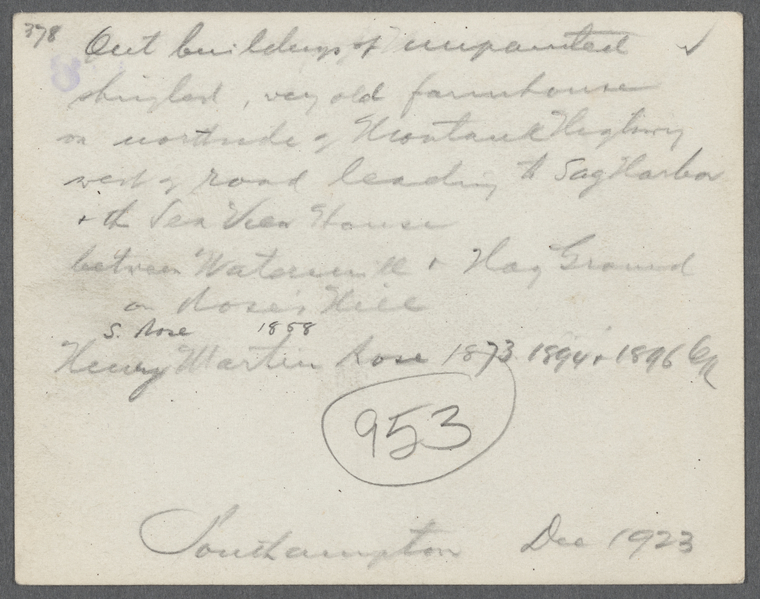 378 Out buildings of unpainted ✓
shingled, very old farmhouse
on northside of Montauk Highway
west of road leading to Sag Harbor
+ the Sea View House
between Watermill + Hay Ground
on Rose's Hill
S. Rose 1858
Henry Martin Rose 1873 1894 + 1896
953
Southampton Dec 1923